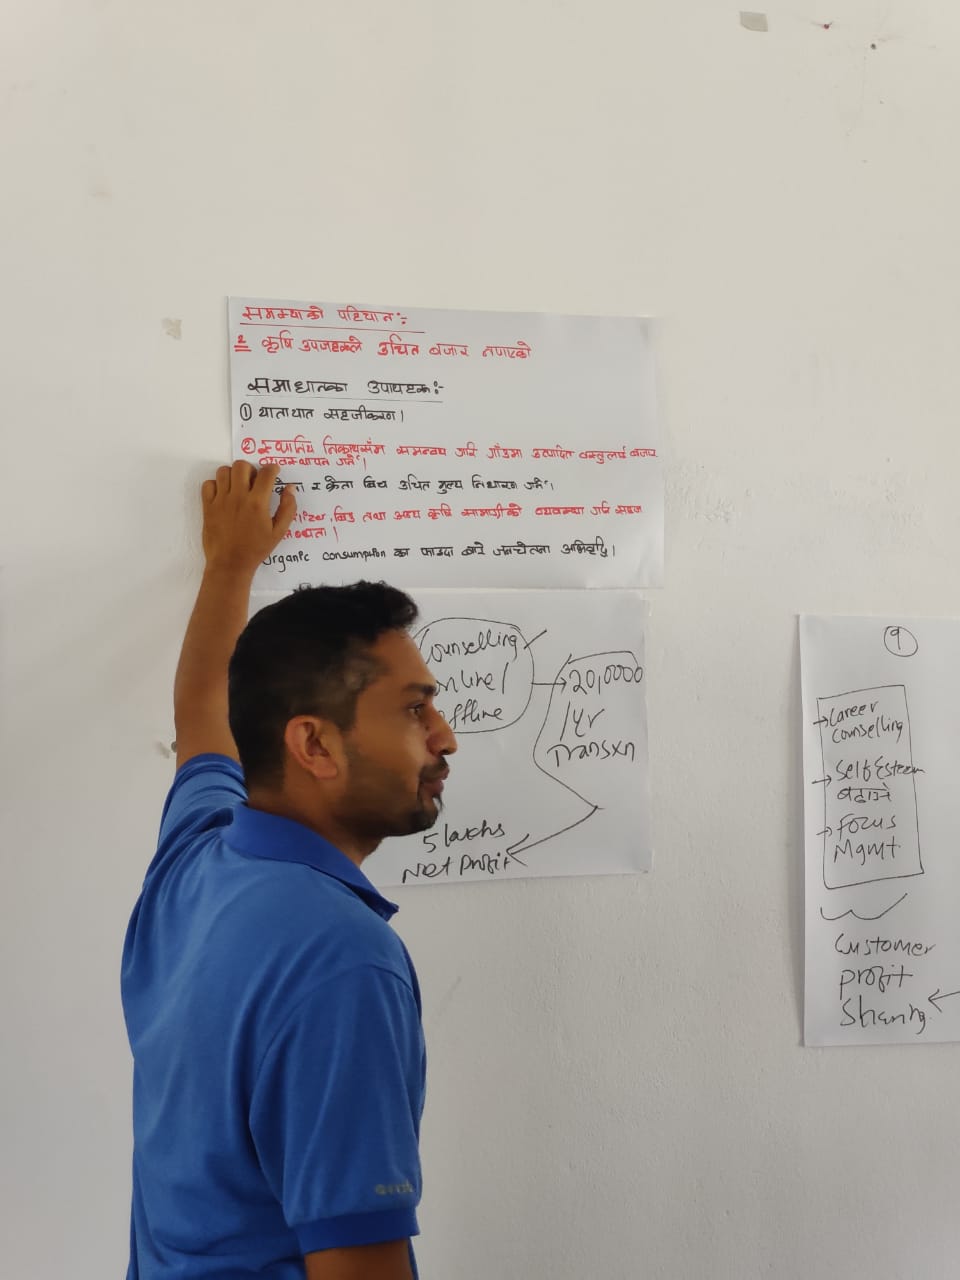 समस्याको पहिचान :-
२ कृषि उपजहरूले उचित बजार नपाएको
समाधानका उपायहरू :-
① यातायात सहजीकरण।
② स्थानिय निकायसँग समन्वय गरि गाँउमा उत्पादित वस्तुलाई बजार
व्यवस्थापन गर्ने।
र क्रेता बिच उचित मुल्य निर्धारण गर्ने।
तथा अन्य कृषि सामाग्रीको व्यवस्था गरि सहज
organic consumption का फाइदा बारे जनचेतना अभिवृद्धि।
counselling
online/
offline
→ 20,0000
/yr
Transxn
5 lakhs
Net profit
१
→ Career
counselling
→ Self Esteem
बढाउने
→ Focus
Mgmt.
Customer
profit
sharing